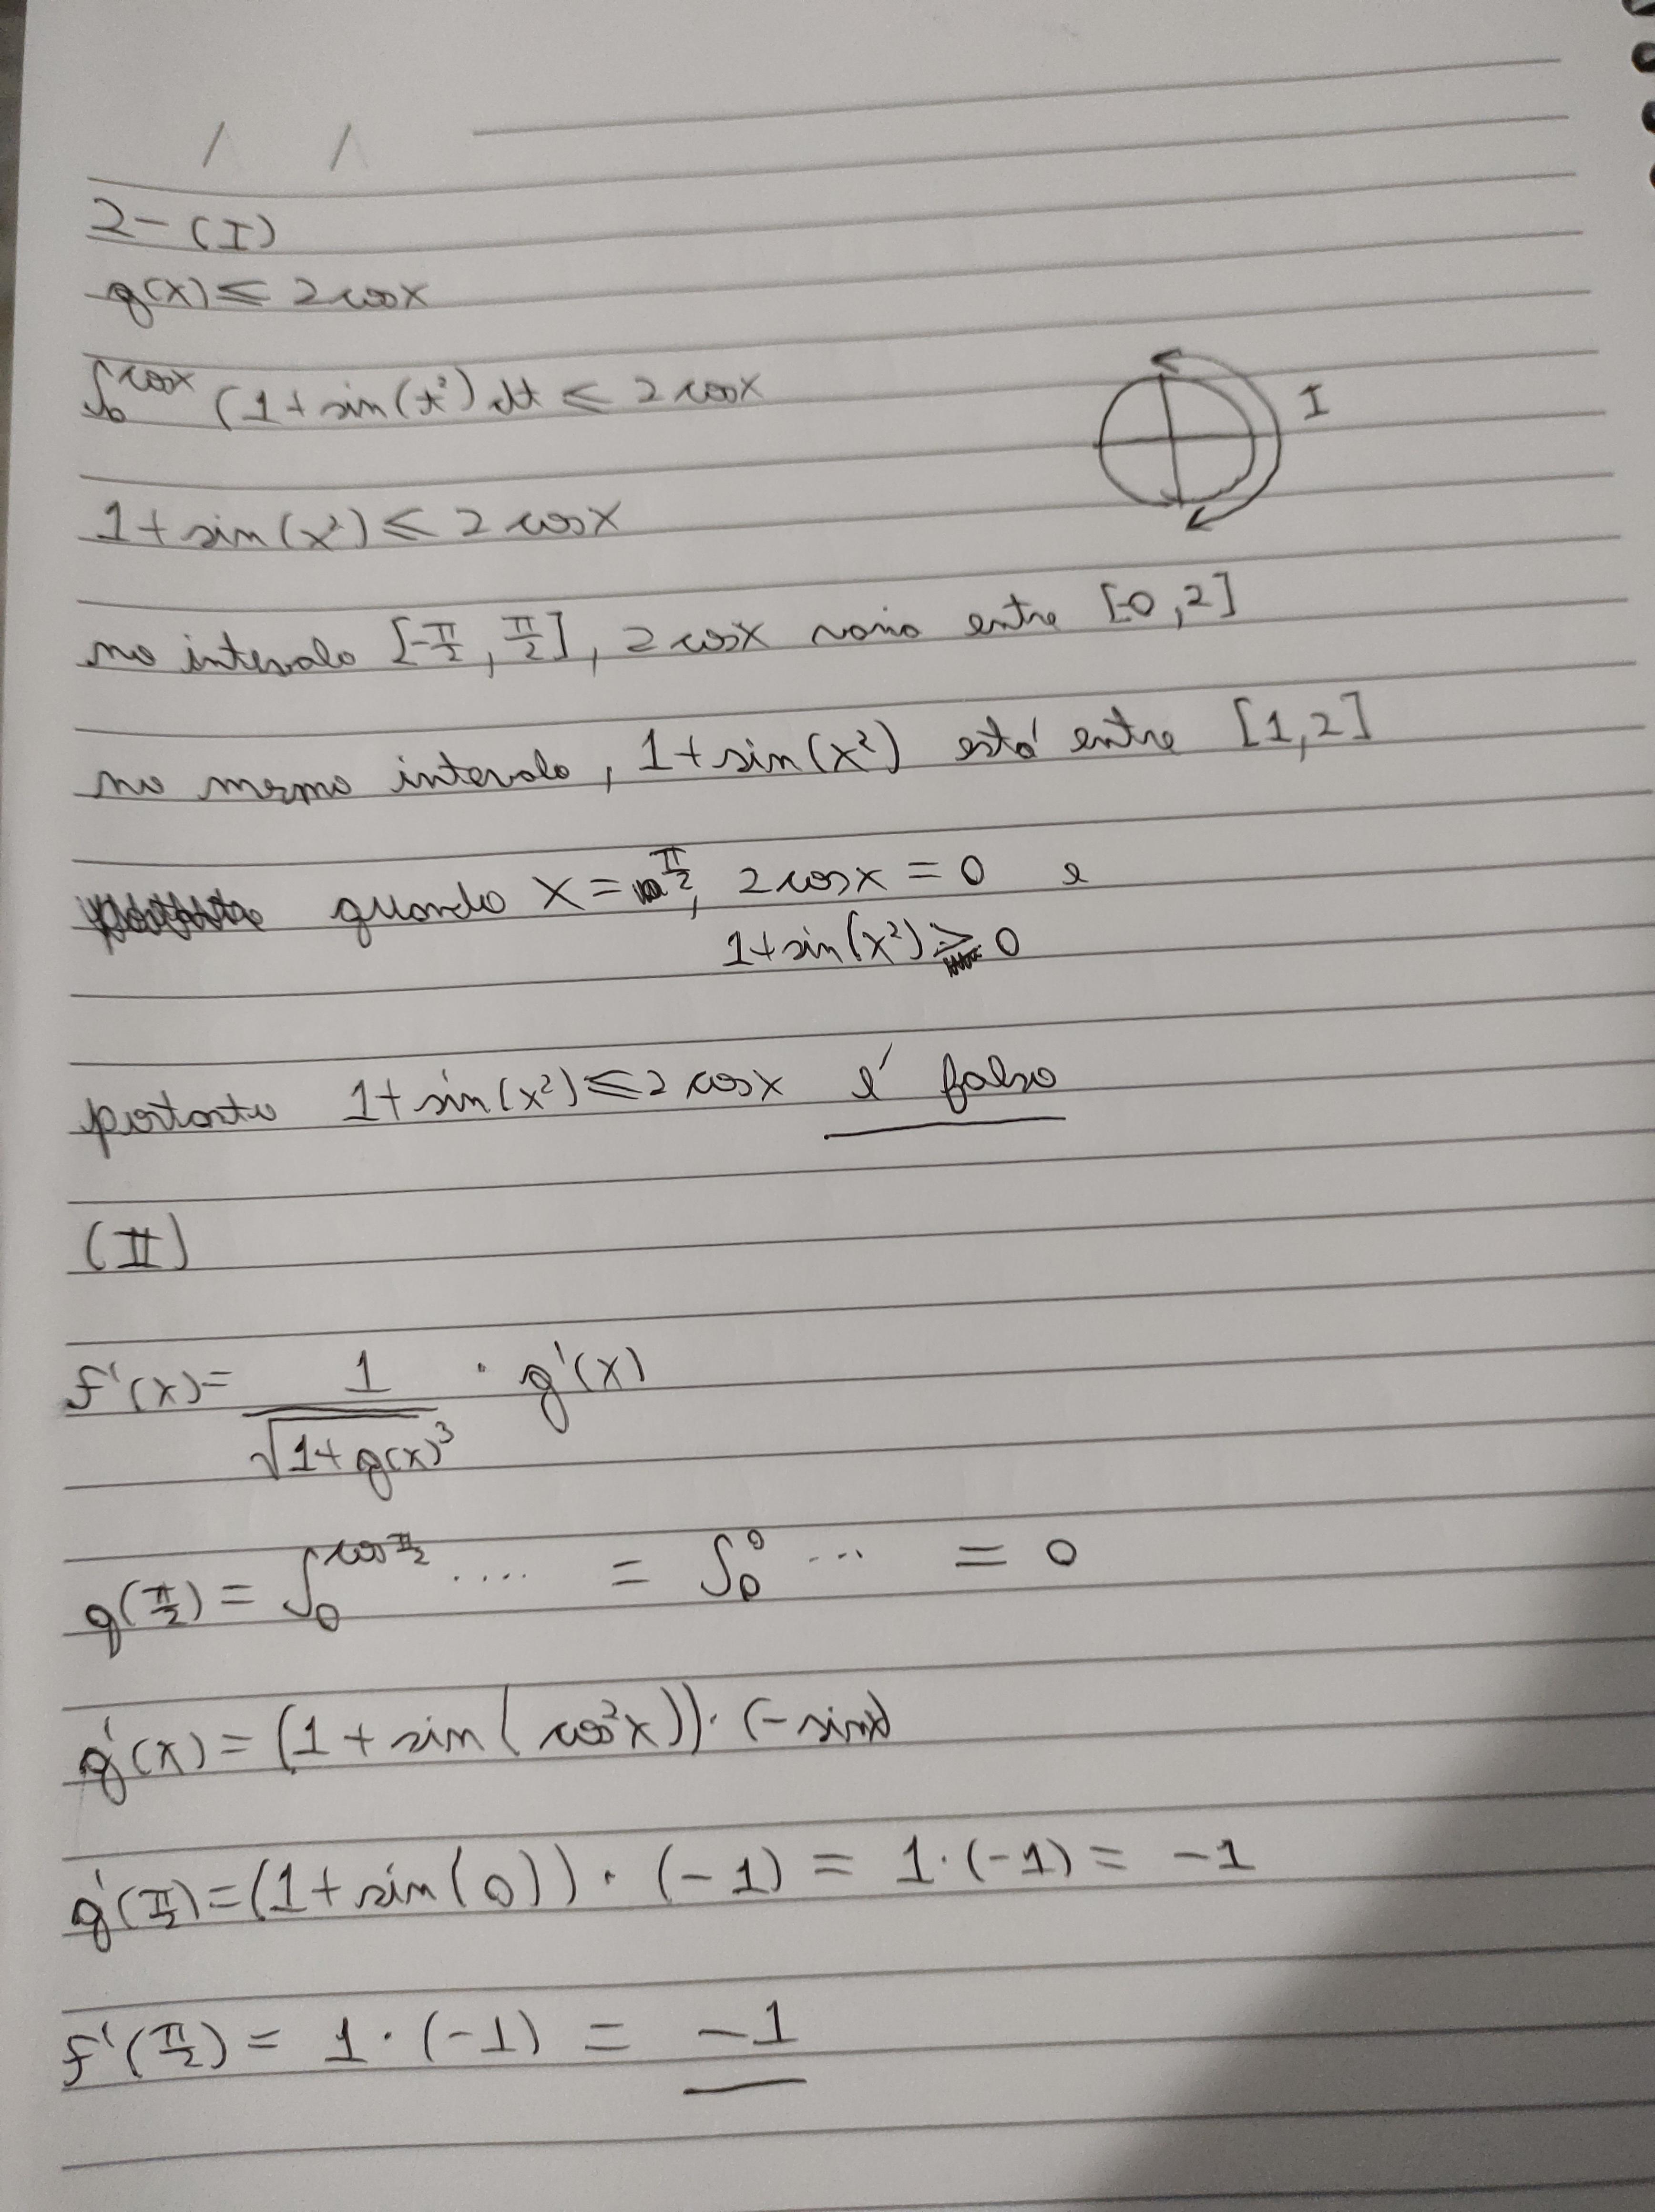 2-(I)
g(x) ≤ 2cosx
∫₀^cosx (1+sin(t²) dt ≤ 2 cosx
I
1+sin(x²) ≤ 2 cosx
no intervalo [-π/2, π/2], 2 cosx varia entre [-0,2]
no mesmo intervalo, 1+sin(x²) está entre [1,2]
quando x = π/2, 2cosx = 0 e
1+sin(x²) > 0
portanto 1+sin(x²) ≤ 2 cosx é falso
(II)
f'(x) = 1/√(1+g(x)³) · g'(x)
g(π/2) = ∫₀^cos π/2 .... = ∫₀⁰ ... = 0
g'(x) = (1+sin(cos²x))·(-sinx)
g'(π/2) = (1+sin(0))·(-1) = 1·(-1) = -1
f'(π/2) = 1·(-1) = -1